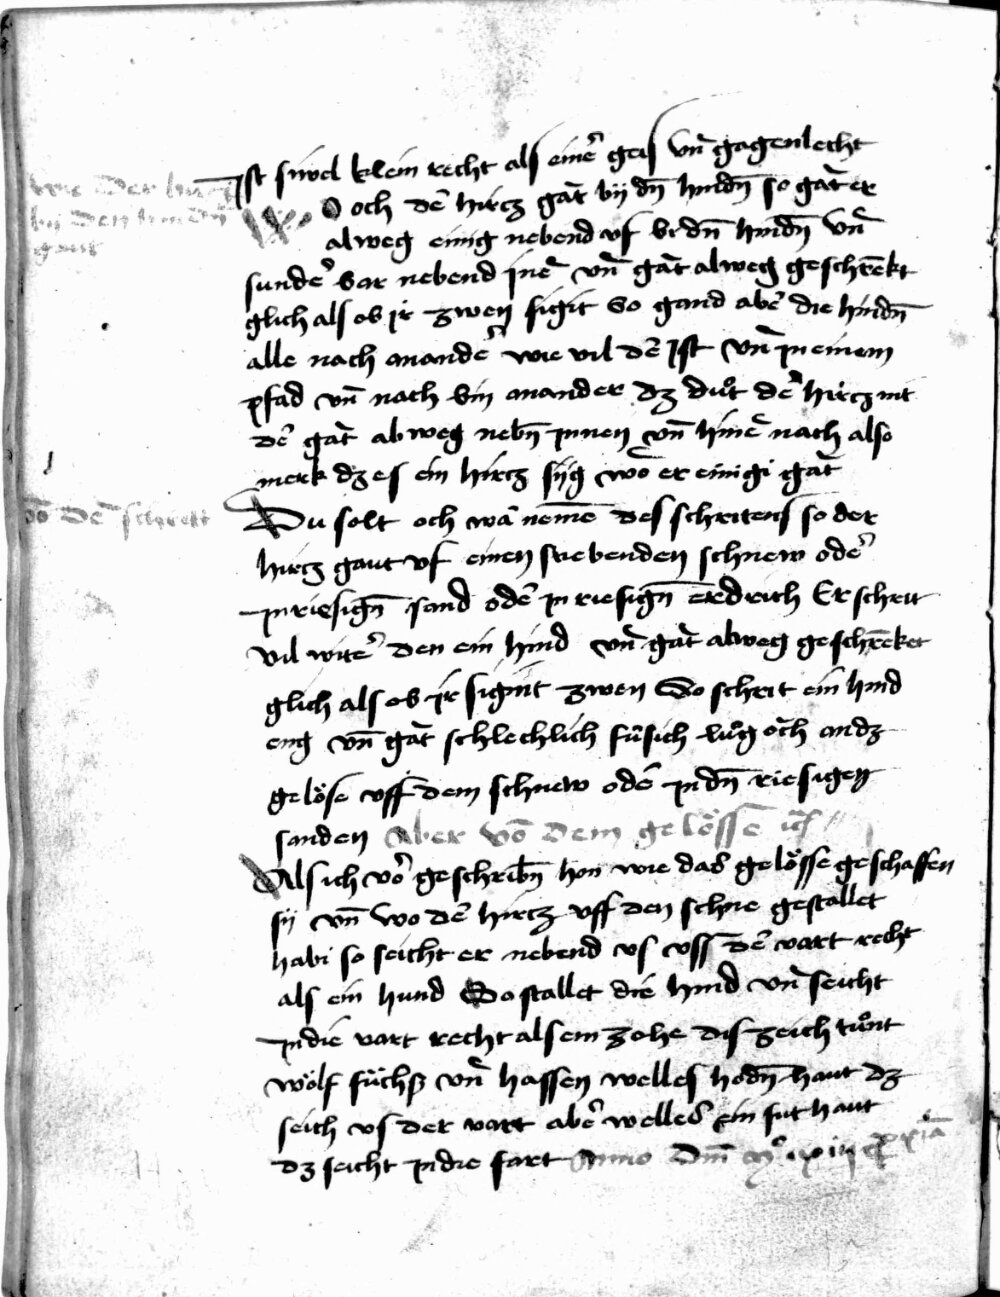 wie der hircz
bij den hinden
gaut
Jst sinwel klein recht als einer geis vn̄ gagenlecht
So och der hircz gāt bij dn̄ hindn̄ so gāt er
alweg einig nebend vs bi dn̄ hindn̄ vn̄
sunder bar nebend jnē vn̄ gāt alweg geschrēkt
glich als ob jr zwen sigit So gand aber die hindn̄
alle nach anander wie vil der Jst vn̄ jn einem
pfad vn̄ nach bin anander dz duͦt der hircz nit
der gāt ab weg nebn̄ jnnen vn̄ hinē nach also
merk dz es ein hircz sijg wo er einigi gāt
vō dē schritt
Du solt och wā nemē des schritens so der
hircz gaut vf einen stiebenden schnew oder
jn riesign̄ sand oder jn riesign̄ erdrich Er schrit
vil witer den ein hind vn̄ gāt alweg geschrēket
glich als ob jr sigint zwen So schrit ein hind
eng vn̄ gāt schlechlich fúrsich luͦg och andz
gelöse vff dem schnew oder jn dn̄ riesigen
sanden Aber vō dem gelösse
Als ich vor geschribn̄ hon wie das gelösse geschaffen
sij vn̄ wo der hircz vff den schne gestallet
habi so seicht er nebend vs vss der vart recht
als ein hund So stallet die hind vn̄ seicht
jn die vart recht als ein zohe dis zeich tuͦnt
wölf füchs vn̄ hassen welles hodn̄ haut dz
seich vs der vart aber welles ein fut haut
dz seicht jn die fart Anno Dm̄